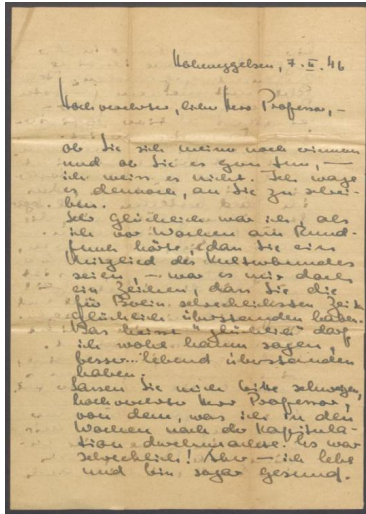 Hoheneggelsen, 7. II. 46
Hochverehrter, lieber Herr Professor, –
ob Sie sich meiner noch erinnern
und ob Sie es gern tun, –
ich weiss es nicht. Ich wage
es dennoch, an Sie zu schrei-
ben.
Sehr glücklich war ich, als
ich vor Wochen am Rund-
funk hörte, dass Sie ein
Mitglied des Kulturbundes
seien, – war es mir doch
ein Zeichen, dass Sie die
für Berlin schrecklichsten Zeit
glücklich überstanden haben.
Das heisst "glücklich" darf
ich wohl kaum sagen,
besser: lebend überstanden
haben.
Lassen Sie mich bitte schweigen,
hochverehrter Herr Professor,
von dem, was ich in den
Wochen nach der Kapitula-
tion durchmachte. Es war
schrecklich! Aber – ich lebe
und bin sogar gesund.